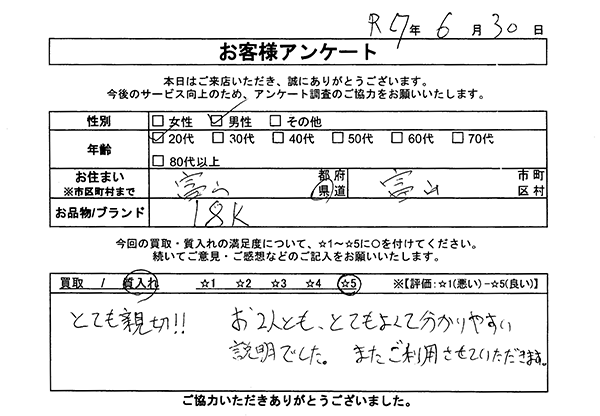 R7年 6月 30日
お客様アンケート
本日はご来店いただき、誠にありがとうございます。
今後のサービス向上のため、アンケート調査のご協力をお願いいたします。
性別 □ 女性 ☑ 男性 □ その他
年齢 ☑ 20代 □ 30代 □ 40代 □ 50代 □ 60代 □ 70代
□ 80代以上
お住まい ※市区町村まで 富山 都府県道 富山 市町区村
お品物/ブランド 18K
今回の買取・質入れの満足度について、☆1～☆5に○を付けてください。
続いてご意見・ご感想などのご記入をお願いいたします。
買取 / 質入れ ☆1 ☆2 ☆3 ☆4 ☆5 ※【評価:☆1(悪い)-☆5(良い)】
とても親切!! お2人とも、とてもよくて分かりやすい
説明でした。 またご利用させていただきます。
ご協力いただきありがとうございました。